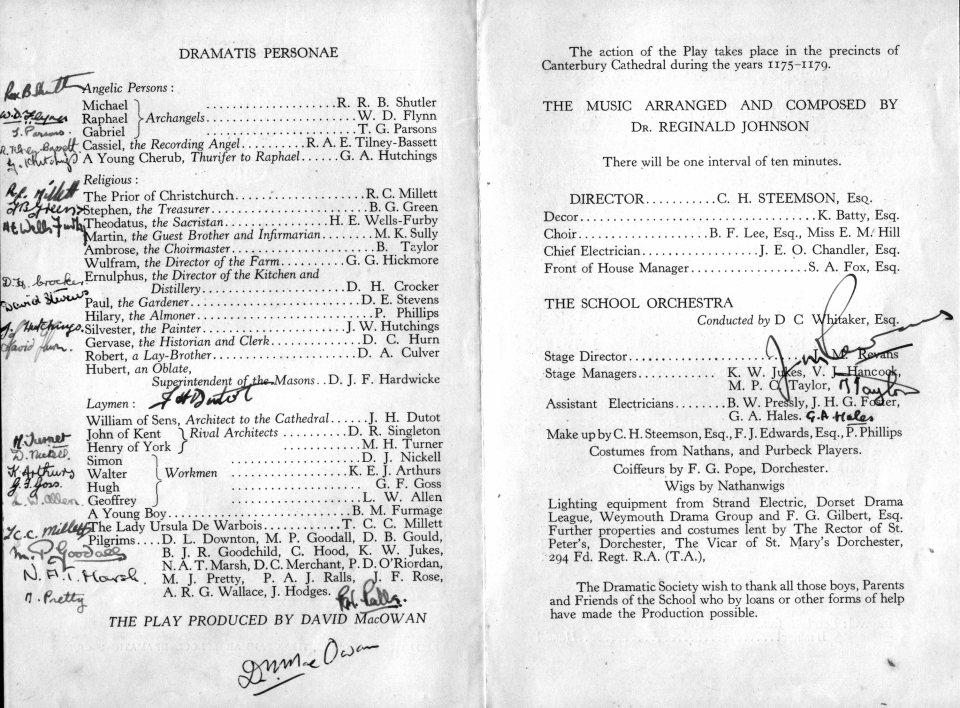 DRAMATIS PERSONAE
Angelic Persons :
Michael ..................... R. R. B. Shutler
Raphael } Archangels ..................... W. D. Flynn
Gabriel ..................... T. G. Parsons
Cassiel, the Recording Angel ........ R. A. E. Tilney-Bassett
A Young Cherub, Thurifer to Raphael ...... G. A. Hutchings
W. D. Flynn
T. Parsons.
Religious :
The Prior of Christchurch ................ R. C. Millett
Stephen, the Treasurer ..................... B. G. Green
Theodatus, the Sacristan ............ H. E. Wells-Furby
Martin, the Guest Brother and Infirmarian ........ M. K. Sully
Ambrose, the Choirmaster ................ B. Taylor
Wulfram, the Director of the Farm .......... G. G. Hickmore
Ernulphus, the Director of the Kitchen and
Distillery ................ D. H. Crocker
Paul, the Gardener ..................... D. E. Stevens
Hilary, the Almoner ..................... P. Phillips
Silvester, the Painter ................ J. W. Hutchings
Gervase, the Historian and Clerk ............ D. C. Hurn
Robert, a Lay-Brother ................ D. A. Culver
Hubert, an Oblate,
Superintendent of the Masons .. D. J. F. Hardwicke
R.C. Millett
H E Wells Furby
D. H. Crocker
David Stevens
J. Hutchings.
David Hurn.
J H Dutot
Laymen :
William of Sens, Architect to the Cathedral ...... J. H. Dutot
John of Kent } Rival Architects ............ D. R. Singleton
Henry of York ..................... M. H. Turner
Simon ..................... D. J. Nickell
Walter } Workmen ................ K. E. J. Arthurs
Hugh ..................... G. F. Goss
Geoffrey ..................... L. W. Allen
A Young Boy ..................... B. M. Furmage
The Lady Ursula De Warbois ............ T. C. C. Millett
Pilgrims .... D. L. Downton, M. P. Goodall, D. B. Gould,
B. J. R. Goodchild, C. Hood, K. W. Jukes,
N. A. T. Marsh, D. C. Merchant, P. D. O'Riordan,
M. J. Pretty, P. A. J. Ralls, J. F. Rose,
A. R. G. Wallace, J. Hodges.
D. Nickell.
K Arthurs
G. F. Goss.
T.C.C. Millett
M. P. Goodall
N. A. T. Marsh.
M. Pretty
THE PLAY PRODUCED BY DAVID MacOWAN
D.M. Mac Owan
The action of the Play takes place in the precincts of
Canterbury Cathedral during the years 1175-1179.
THE MUSIC ARRANGED AND COMPOSED BY
DR. REGINALD JOHNSON
There will be one interval of ten minutes.
DIRECTOR ............ C. H. STEEMSON, ESQ.
Decor ..................... K. Batty, Esq.
Choir ................ B. F. Lee, Esq., Miss E. M. Hill
Chief Electrician ................ J. E. O. Chandler, Esq.
Front of House Manager ................ S. A. Fox, Esq.
THE SCHOOL ORCHESTRA
Conducted by D C Whitaker, Esq.
Stage Director ..................... J. M. Revans
Stage Managers .......... K. W. Jukes, V. J. Hancock,
M. P. O. Taylor,
M Taylor
Assistant Electricians ........ B. W. Pressly, J. H. G. Foster,
G. A. Hales. G.A Hales
Make up by C. H. Steemson, Esq., F. J. Edwards, Esq., P. Phillips
Costumes from Nathans, and Purbeck Players.
Coiffeurs by F. G. Pope, Dorchester.
Wigs by Nathanwigs
Lighting equipment from Strand Electric, Dorset Drama
League, Weymouth Drama Group and F. G. Gilbert, Esq.
Further properties and costumes lent by The Rector of St.
Peter's, Dorchester, The Vicar of St. Mary's Dorchester,
294 Fd. Regt. R.A. (T.A.),
The Dramatic Society wish to thank all those boys, Parents
and Friends of the School who by loans or other forms of help
have made the Production possible.